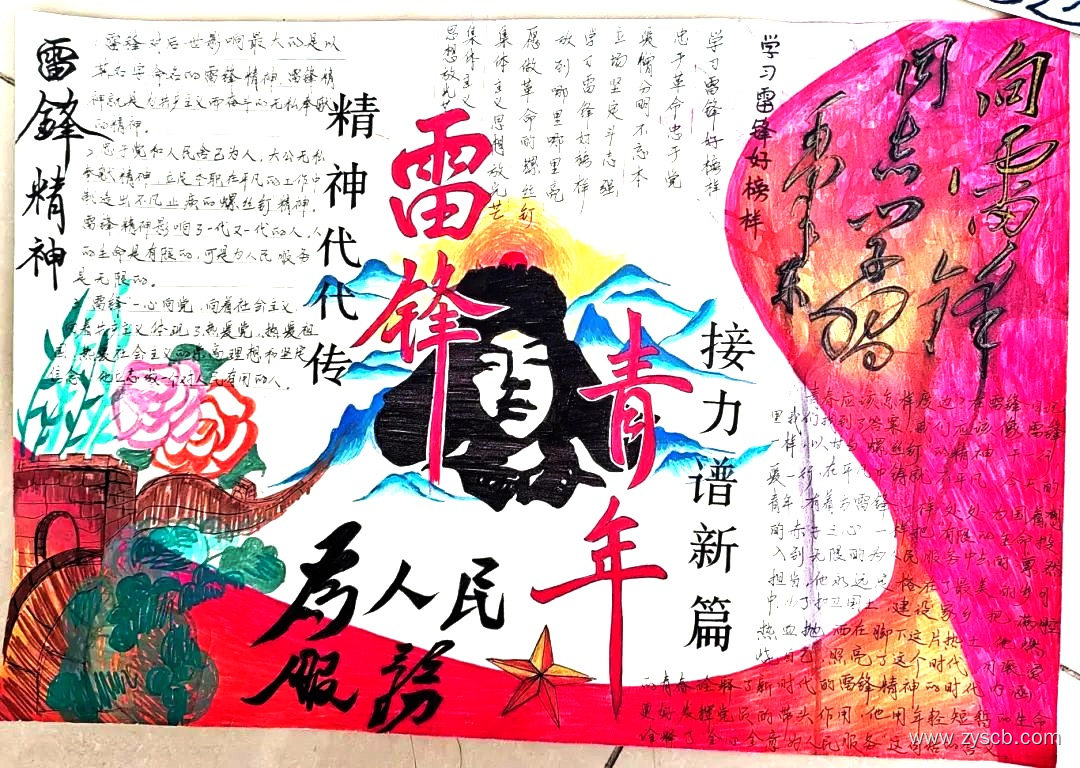 雷锋精神
雷锋对后世影响最大的是以
其名字命名的雷锋精神,雷锋精
神就是为共产主义而奋斗的无私奉献
的精神。
忠于党和人民舍己为人,大公无私
奉献精神,立足本职在平凡的工作中
创造出不凡业绩的螺丝钉精神。
雷锋精神影响了一代又一代的人,人
的生命是有限的,可是为人民服务
是无限的。
雷锋一心向党,向着社会主义
热爱党,热爱祖
国,热爱社会主义的崇高理想和坚定
信念,他立志做一个对人民有用的人。
精神代代传
雷锋
青年
接力谱新篇
为人民
服务
学习雷锋好榜样
学习雷锋好榜样
忠于革命忠于党
爱憎分明不忘本
立场坚定斗志强
学习雷锋好榜样
放到哪里哪里亮
愿做革命的螺丝钉
集体主义思想放光芒
集体主义
思想放光芒
向雷锋
同志学习
毛泽东
青春应该怎样度过?
里我们找到了答案,我们应该像雷锋
一样,以
螺丝钉的精神,干一行
爱一行,在平凡中铸就不平凡。
青年,有着与雷锋一样处处为国
的赤子之心,一样把有限的生命投
入到无限的为人民服务中去的
担当,他永远定格在了最美的
中,为了
国土,建设家乡,把满腔
热血抛洒在脚下这片热土,他燃
烧自己,照亮了这个时代,
的青春诠释了新时代的雷锋精神的时代内涵,
更好发挥党员的带头作用,他用年轻短暂的生命
诠释了"全心全意为人民服务"
www.zyscb.com